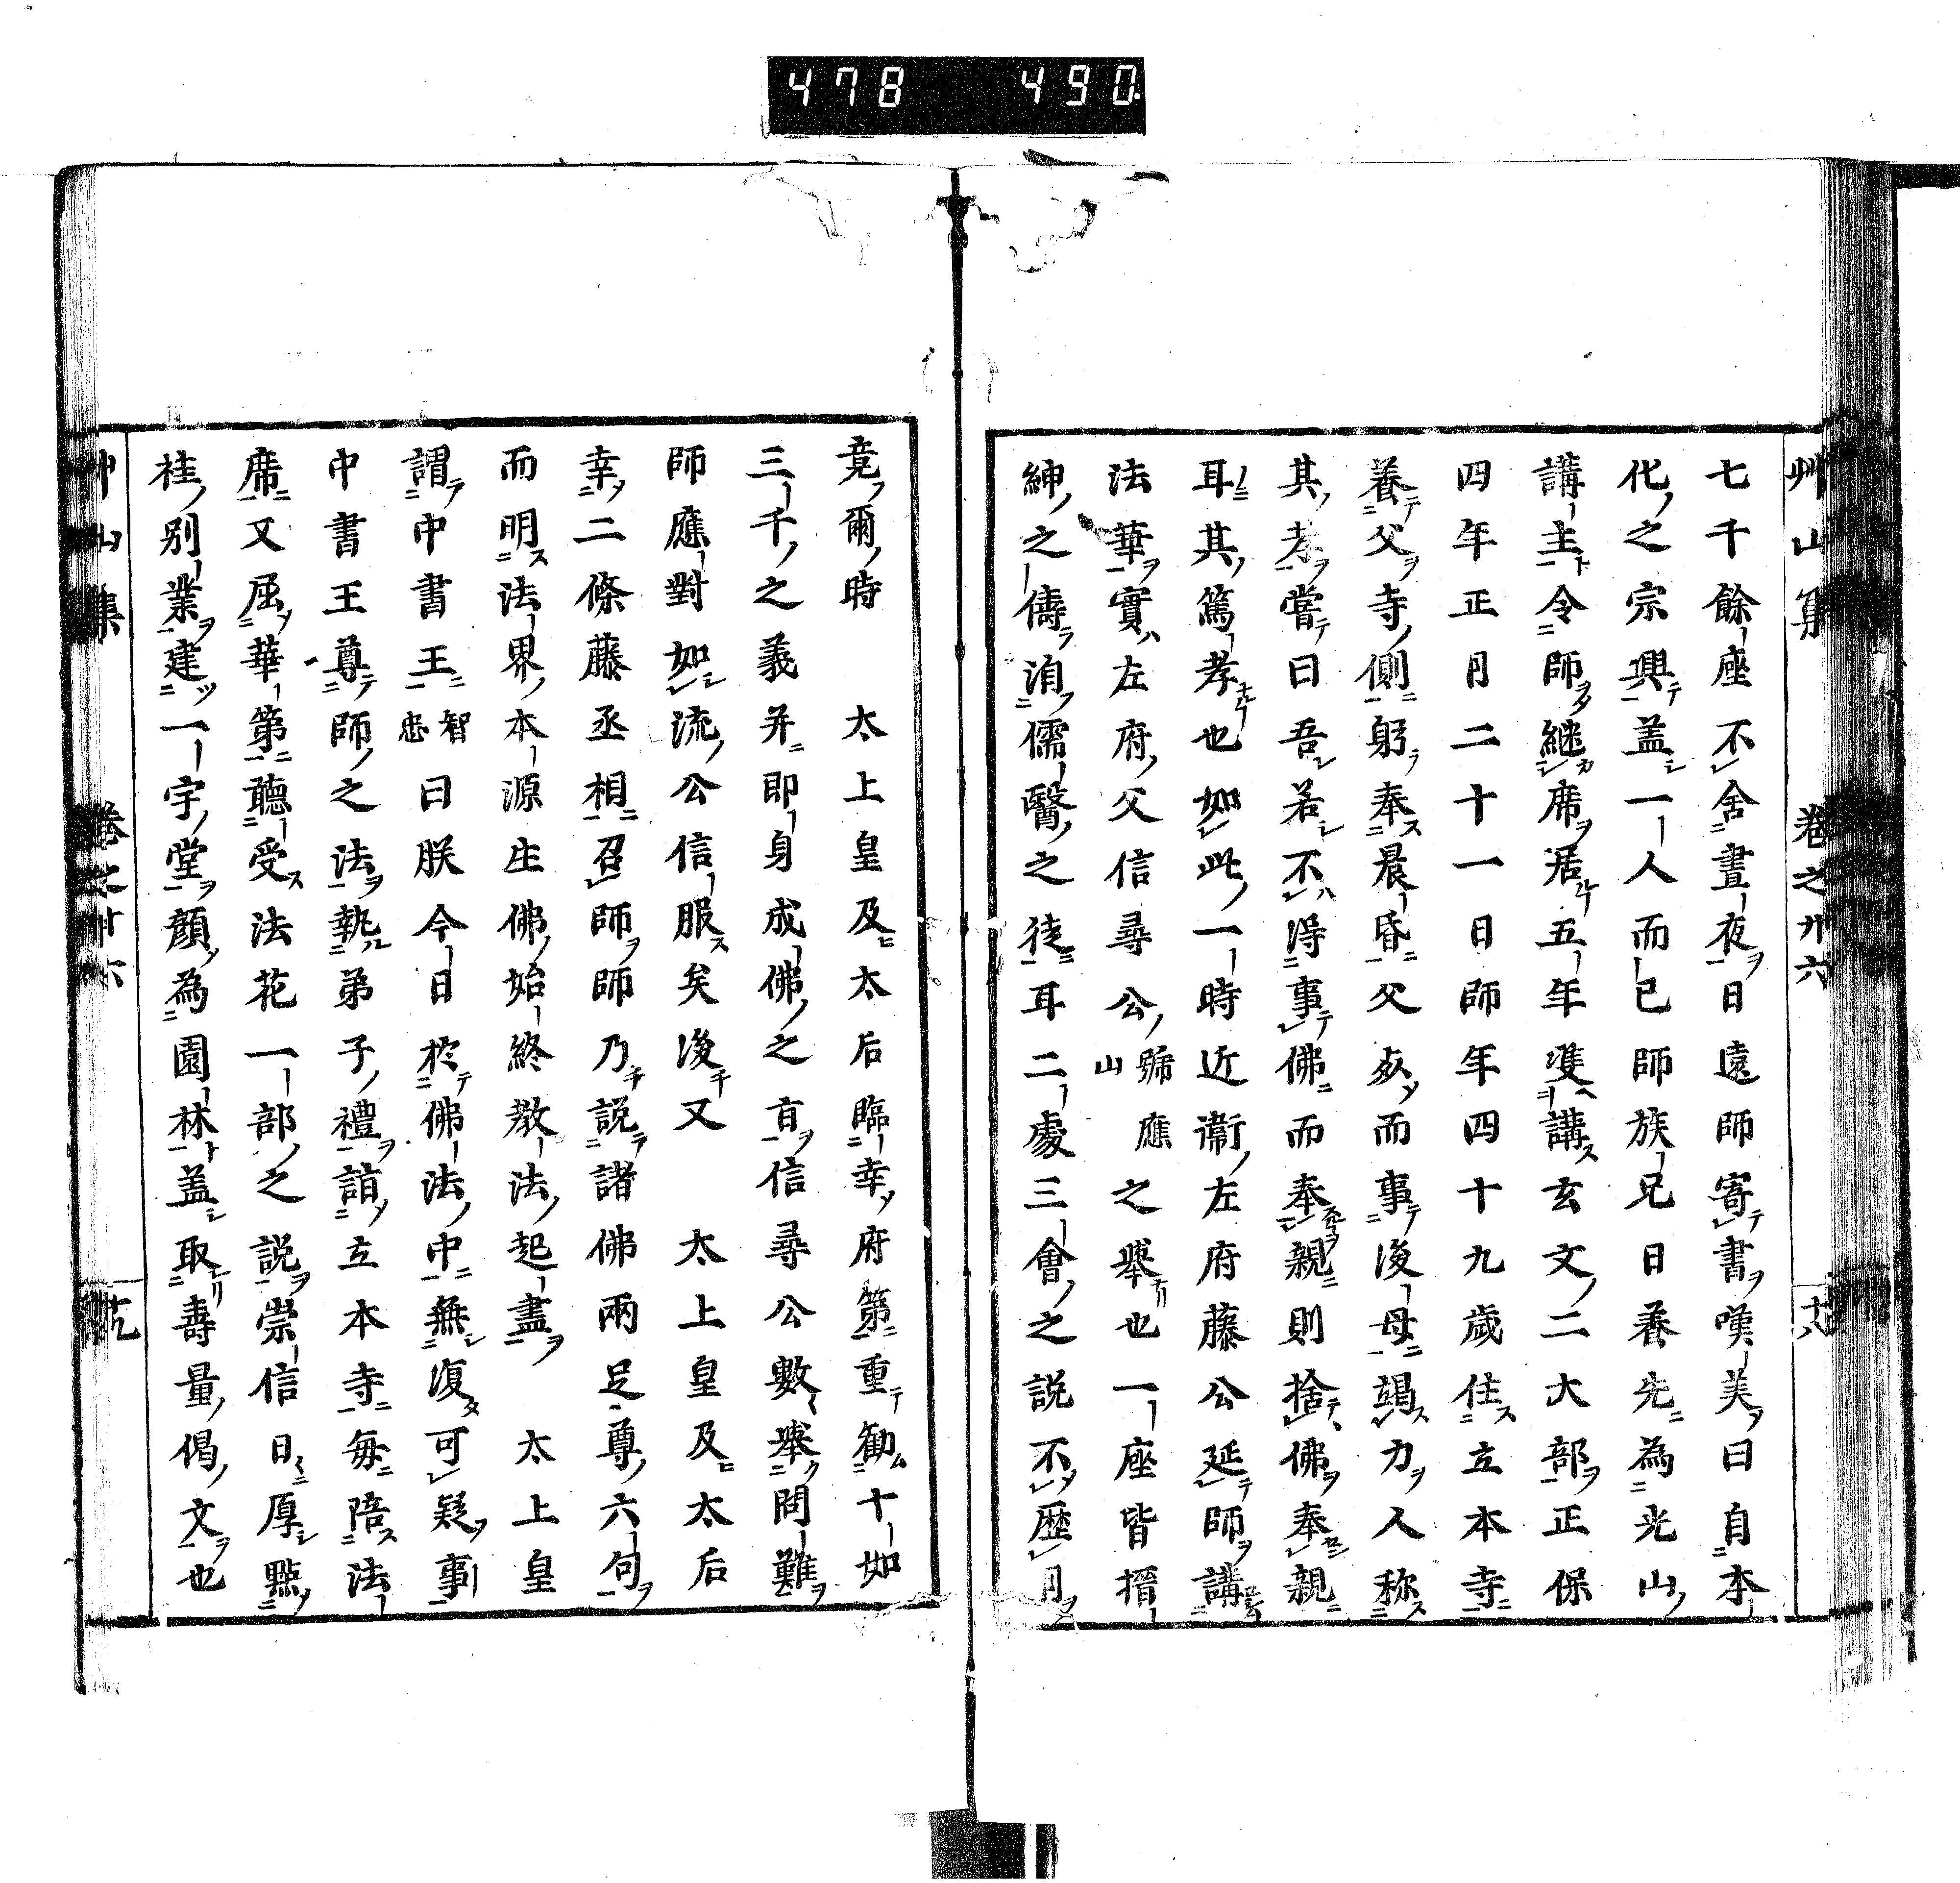 478 490
艸山集 卷之廿六 十八
七千餘座不舍晝夜日遠師寄書嘆美曰自本
化之宗興盖一人而已師族兄日養先為光山
講主令師繼席居五年雙講玄文二大部正保
四年正月二十一日師年四十九歲住立本寺
養父寺側躬奉晨昏父歿而事後母竭力人称
其孝嘗曰吾若不得事佛而奉親則捨佛奉親
耳其篤孝也如此一時近衞左府藤公延師講
法華實左府父信尋公號應山之舉也一座皆搢
紳之儔洎儒醫之徒耳二處三會之説不歷月
竟爾時 太上皇及太后臨幸府第重勸十如
三千之義并即身成佛之旨信尋公數舉問難
師應對如流公信服矣後又 太上皇及太后
幸二條藤丞相召師師乃説諸佛兩足尊六句
而明法界本源庄佛始終教法起盡 太上皇
謂中書王智忠曰朕今日於佛法中無復可疑事
中書王尊師之法執弟子禮詣立本寺每陪法
席又屈華第聽受法花一部之説崇信日厚點
桂別業建一宇堂顏為園林盖取壽量偈文也
艸山集 卷之廿六 十九